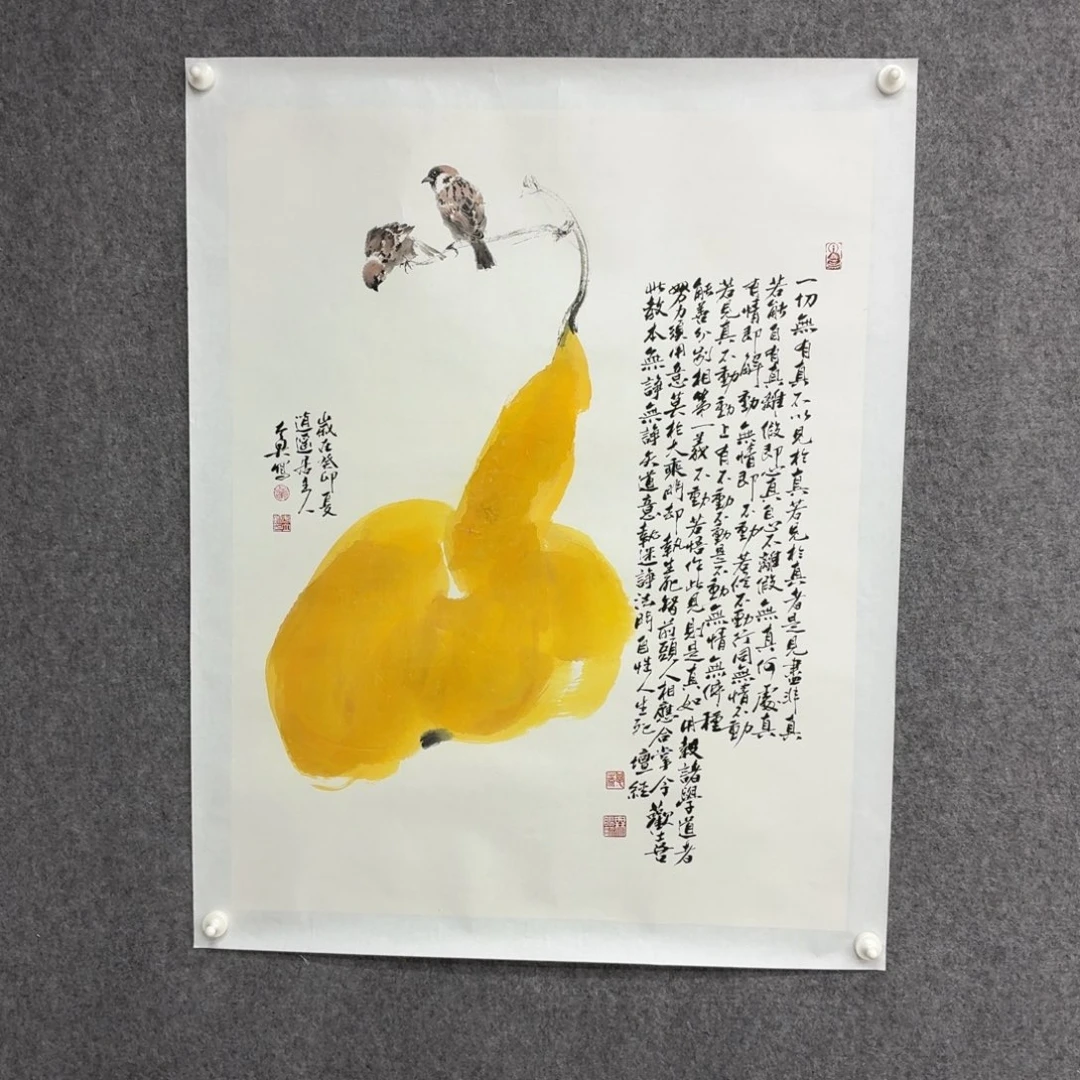 一切無有真不以見於真若見於真者是見盡非真
若能自有真離假即心真自心不離假無真何處真
有情即解動無情即不動若修不動行同無情不動
若見真不動動上有不動不動是不動無情無佛種
能善分別相第一義不動若悟作此見則是真如用報諸學道者
努力須用意莫於大乘門却執生死智前頭人相應合掌令歡喜
此教本無諍無諍失道意執迷諍法門自性入生死 壇經
歲在癸卯夏
逍遙居主人